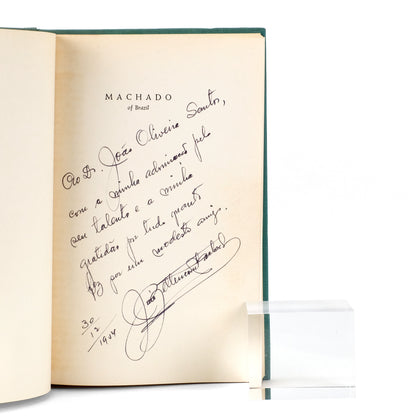 MACHADO
of Brazil
Ao Dr. João Oliveira Santos,
com a minha admiração pelo
seu talento e a minha
gratidão por tudo quanto
fez por este modesto amigo.
30/12/1984